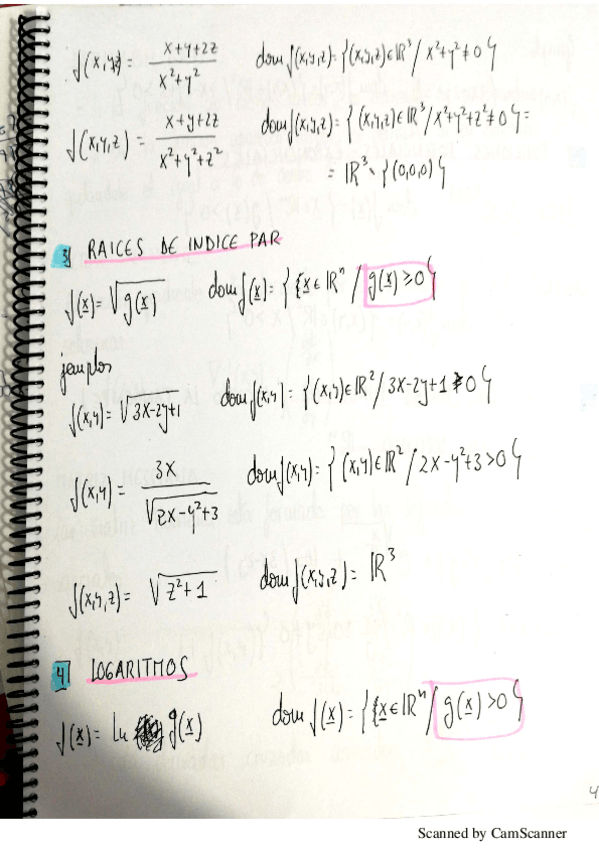 f(x,y,z) = x+y+2z / x²+y² dom f(x,y,z) = {(x,y,z)∈ℝ³ / x²+y²≠0}
f(x,y,z) = x+y+2z / x²+y²+z² dom f(x,y,z) = {(x,y,z)∈ℝ³ / x²+y²+z²≠0} =
= ℝ³ \ {(0,0,0)}
3) RAICES DE INDICE PAR
f(x) = √g(x) dom f(x) = {{x∈ℝⁿ / g(x)≥0}
jemplos
f(x,y) = √3x-2y+1 dom f(x,y) = {(x,y)∈ℝ² / 3x-2y+1≥0}
f(x,y) = 3x / √2x-y²+3 dom f(x,y) = {(x,y)∈ℝ² / 2x-y²+3>0}
f(x,y,z) = √z²+1 dom f(x,y,z) = ℝ³
4) LOGARITMOS
f(x) = Ln g(x) dom f(x) = {{x∈ℝⁿ / g(x)>0}
4
Scanned by CamScanner